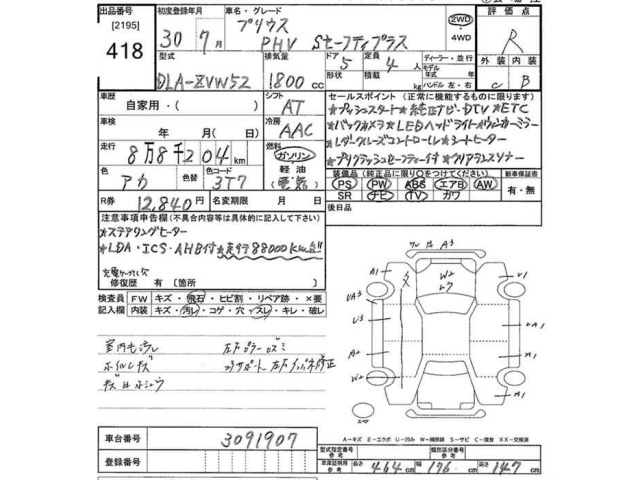 出品番号 初度登録年月 車名・グレード 評価点
[2195]
418
30年7月 プリウス PHV Sセーフティプラス 2WD・4WD R
型式 排気量 ドア 定員 ディーラー・並行 外装 内装
DLA-ZVW52 1800cc 5形状 4人 モデル年式 年 ハンドル 左・右 C B
車歴 自家用・( ) シフト AT セールスポイント(正常に機能するものに限る)
★プッシュスタート★純正ナビ・DTV★ETC
車検 年 月(日) 冷房 AAC
★バックカメラ★LEDヘッドライト★ウィンカーミラー
走行 8万8千204km 燃料 ガソリン・軽油(電気)
★レーダークルーズコントロール★シートヒーター
★プリクラッシュセーフティー付★クリアランスソナー
色 アカ 色替 色コード 3T7
装備品(純正品に限り○をつけてください) 新車保証書
PS PW ABS エアB AW 有・無
SR ナビ TV カワ
R券 12,840円 名変期限 月 日
後日品
注意事項申告欄(不具合内容等は具体的に記入して下さい)
★ステアリングヒーター
★LDA・ICS・AHB付★走行88000Km台!!
充電ケーブル欠
修復歴 有[箇所 ]
検査員記入欄 FW キズ・飛石・ヒビ割・リペア跡・×要
内装 キズ・汚レ・コゲ・穴・スレ・キレ・破レ
室内モ汚レ 左Fピラーロズミ
ホイルキズ コアサポート 左Fインパネ修正
キズ凹ホショウ
ワレ凹 A3
A1 W2 U1
UA3
U3 UA1
A2 A1
W2 UA1
スペア
A-キズ E-エクボ U-凹み W-補修跡 S-サビ C-腐食 XX-交換済
車台番号 3091907
型式指定番号 類別区分番号
登録番号 車庫証明用参考 長さ 464cm 幅 176cm 高さ 147cm